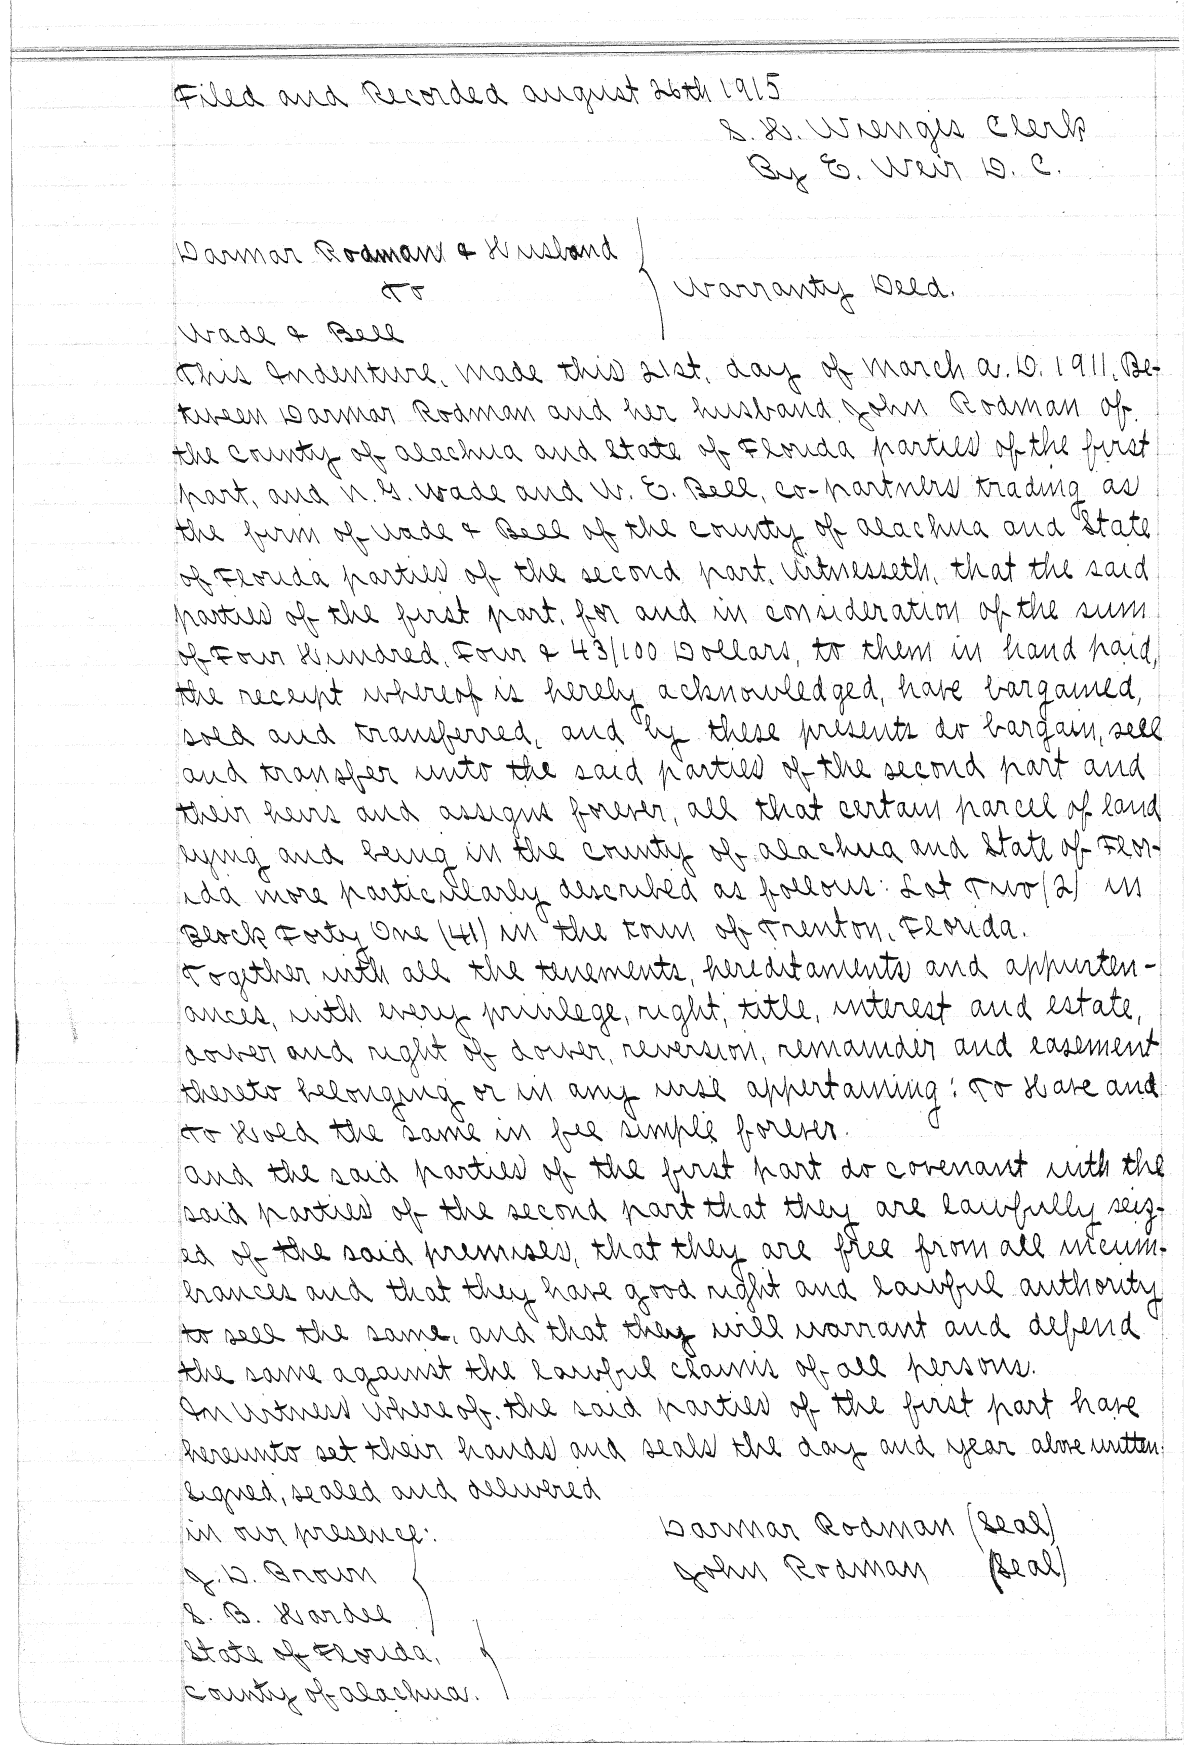 Filed and Recorded August 26th 1915
S. H. Wienges Clerk
By E. Weir D. C.
Darmar Rodman & Husband
To
Warranty Deed.
Wade & Bell
This Indenture, made this 21st, day of March A. D. 1911, Be-
tween Darmar Rodman and her husband John Rodman of
the County of Alachua and State of Florida parties of the first
part, and N. G. Wade and W. E. Bell, co-partners trading as
the firm of Wade & Bell of the County of Alachua and State
of Florida parties of the second part, Witnesseth, that the said
parties of the first part, for and in consideration of the sum
of Four Hundred, Four & 43/100 Dollars, to them in hand paid,
the receipt whereof is hereby acknowledged, have bargained,
sold and transferred, and by these presents do bargain, sell
and transfer unto the said parties of the second part and
their heirs and assigns forever, all that certain parcel of land
lying and being in the County of Alachua and State of Flor-
ida more particularly described as follows: Lot Two (2) in
Block Forty One (41) in the town of Trenton, Florida.
Together with all the tenements, hereditaments and appurten-
ances, with every privilege, right, title, interest and estate,
dower and right of dower, reversion, remainder and easement
thereto belonging or in any wise appertaining: To Have and
To Hold the same in fee simple forever.
And the said parties of the first part do covenant with the
said parties of the second part that they are lawfully seiz-
ed of the said premises, that they are free from all incum-
brances and that they have good right and lawful authority
to sell the same, and that they will warrant and defend
the same against the lawful claims of all persons.
In Witness Whereof, the said parties of the first part have
hereunto set their hands and seals the day and year above written.
Signed, sealed and delivered
in our presence:
Darmar Rodman (Seal)
J. D. Brown
John Rodman (Seal)
S. B. Hardee
State of Florida,
County of Alachua.